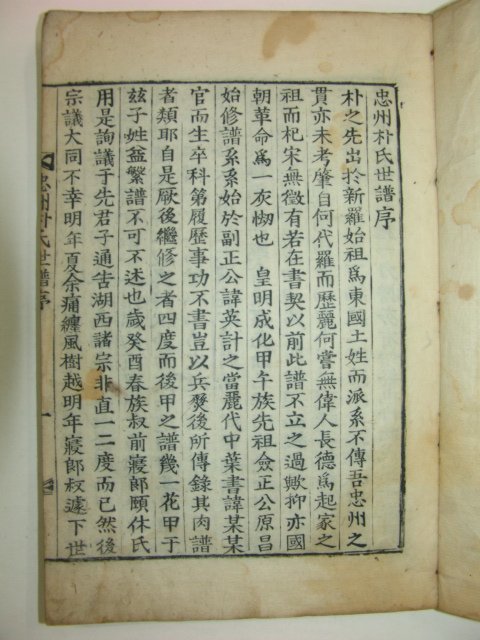 忠州朴氏世譜序
朴之先出於新羅始祖爲東國土姓而派系不傳吾忠州之
貫亦未考肇自何代羅而歷麗何嘗無偉人長德爲起家之
祖而杞宋無徵有若在書契以前此譜不立之過歟抑亦國
朝革命爲一灰㤼也 皇明成化甲午族先祖僉正公原昌
始修譜系系始於副正公諱英計之當麗代中葉書諱某某
官而生卒科第履歷事功不書豈以兵燹後所傳錄其肉譜
者類耶自是厥後繼修之者四度而後甲之譜幾一花甲于
玆子姓益繁譜不可不述也歲癸酉春族叔前寢郎頤休氏
用是詢議于先君子通告湖西諸宗非直一二度而已然後
宗議大同不幸明年夏余痛纏風樹越明年寢郎叔遽下世
忠州朴氏世譜序
一